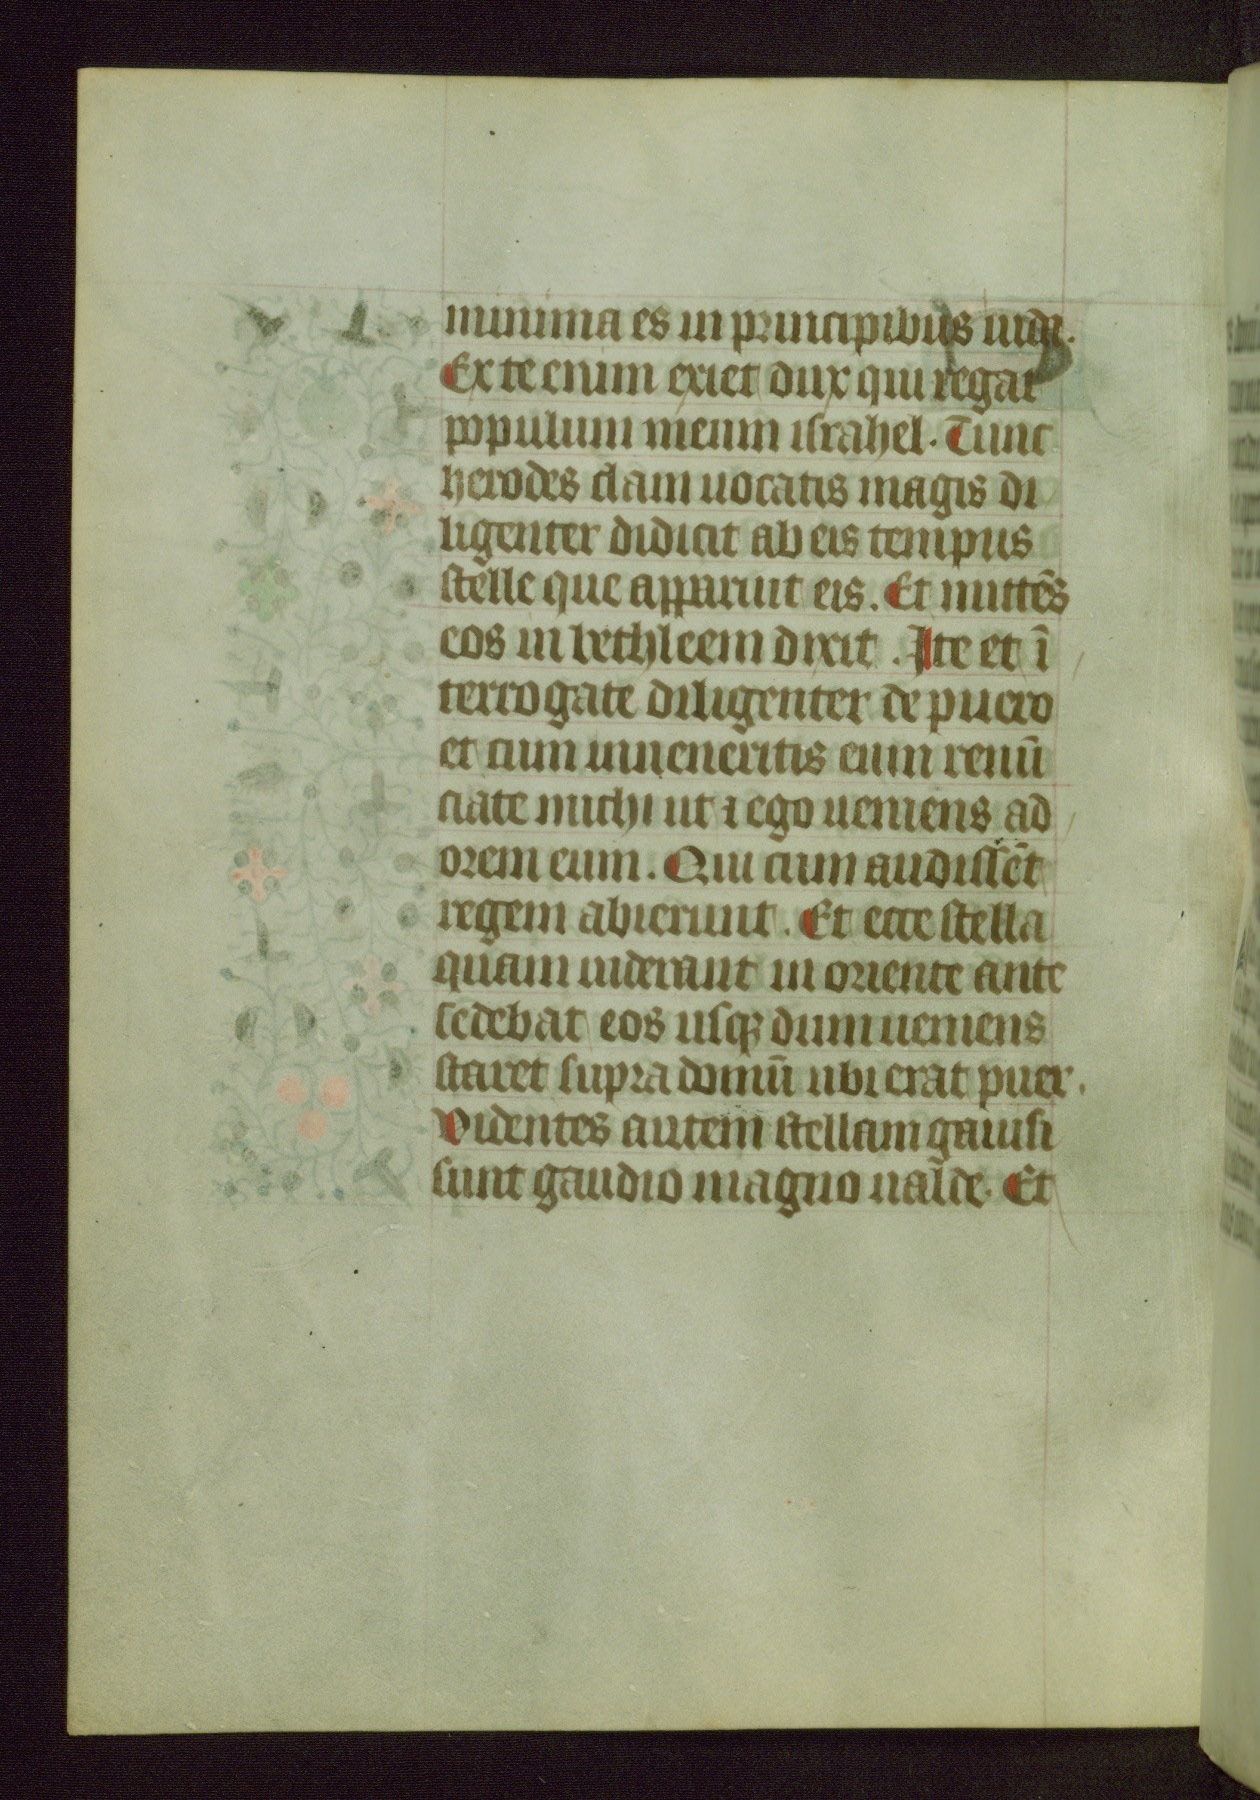 minima es in principibus iuda.
Ex te enim exiet dux qui regat
populum meum israhel. Tunc
herodes clam uocatis magis di
ligenter didicit ab eis tempus
stelle que apparuit eis. Et mittēs
eos in bethleem dixit. Ite et ī
terrogate diligenter de puero
et cum inueneritis eum renū
ciate michi ut ⁊ ego ueniens ad
orem eum. Qui cum audissēt
regem abierunt. Et ecce stella
quam uiderant in oriente ante
cedebat eos usqꝫ dum ueniens
staret supra domū ubi erat puer.
Videntes autem stellam gauisi
sunt gaudio magno ualde. Et